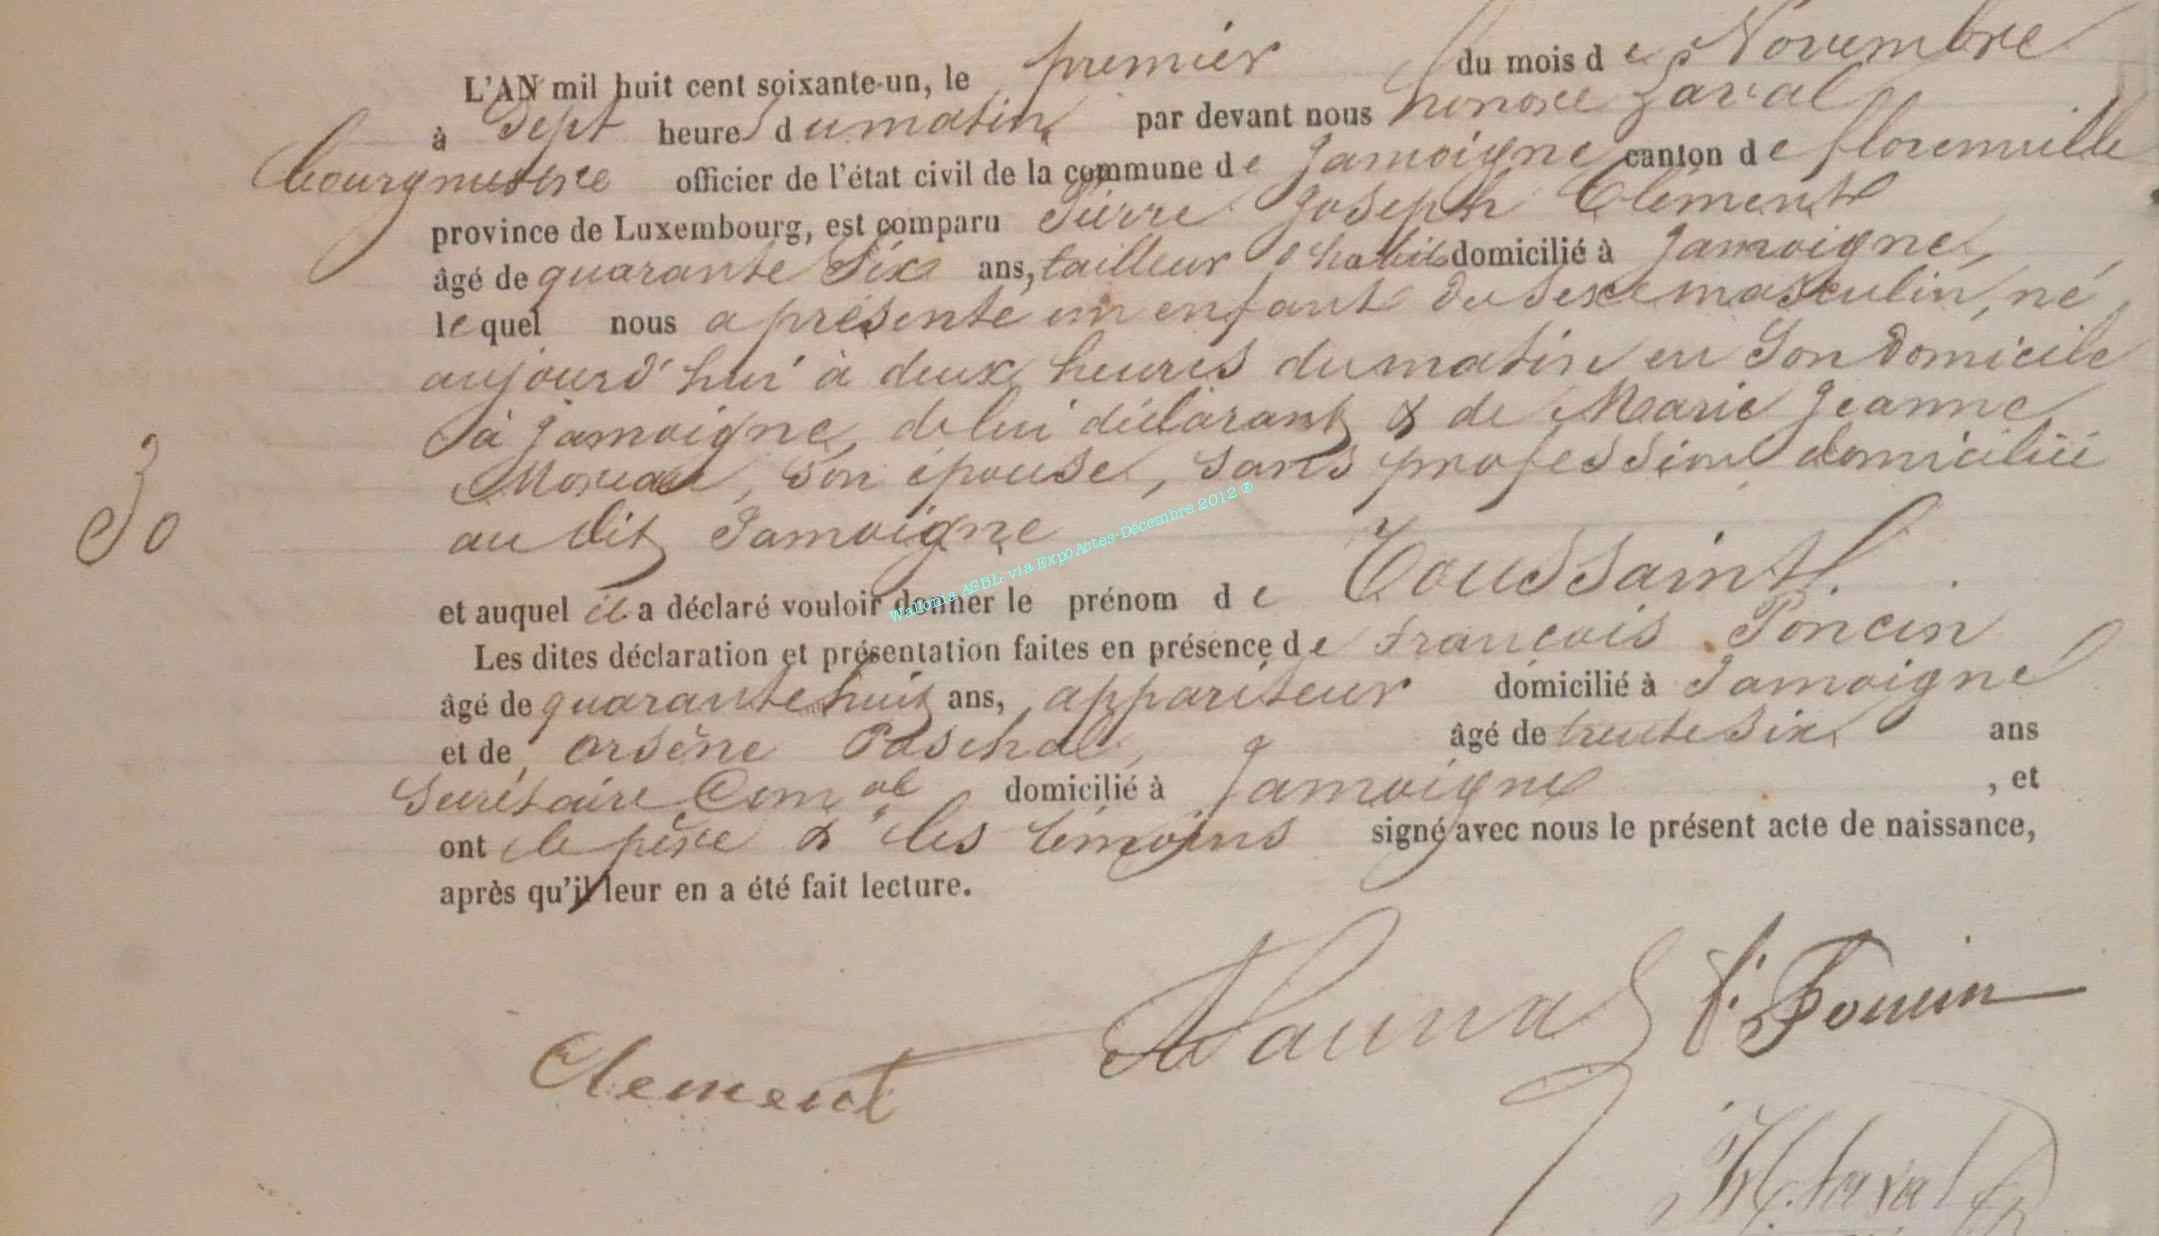 L'AN mil huit cent soixante-un, le premier du mois de Novembre
à Sept heures du matin, par devant nous honoré Laval
bourgmestre officier de l'état civil de la commune de Jamoigne canton de florenville
province de Luxembourg, est comparu Pierre Joseph Clément
âgé de quarante Six ans, tailleur d'habits domicilié à Jamoigne,
lequel nous a présenté un enfant du Sexe masculin, né
aujourd'hui à deux heures du matin en Son domicile
à Jamoigne, de lui déclarant & de Marie Jeanne
Moreau, Son épouse, Sans profession domiciliée
au dit Jamoigne
30
et auquel il a déclaré vouloir donner le prénom de Toussaint.
Les dites déclaration et présentation faites en présence de francois Poncin
âgé de quarante huit ans, appariteur domicilié à Jamoigne
et de arsène Paschal, âgé de trente Six ans
Secrétaire Com.al domicilié à Jamoigne, et
ont le père & les témoins signé avec nous le présent acte de naissance,
après qu'il leur en a été fait lecture.
Clement
f. Poncin
H. Laval
Wallonia ASBL via ExpoActes-Décembre 2012 ®